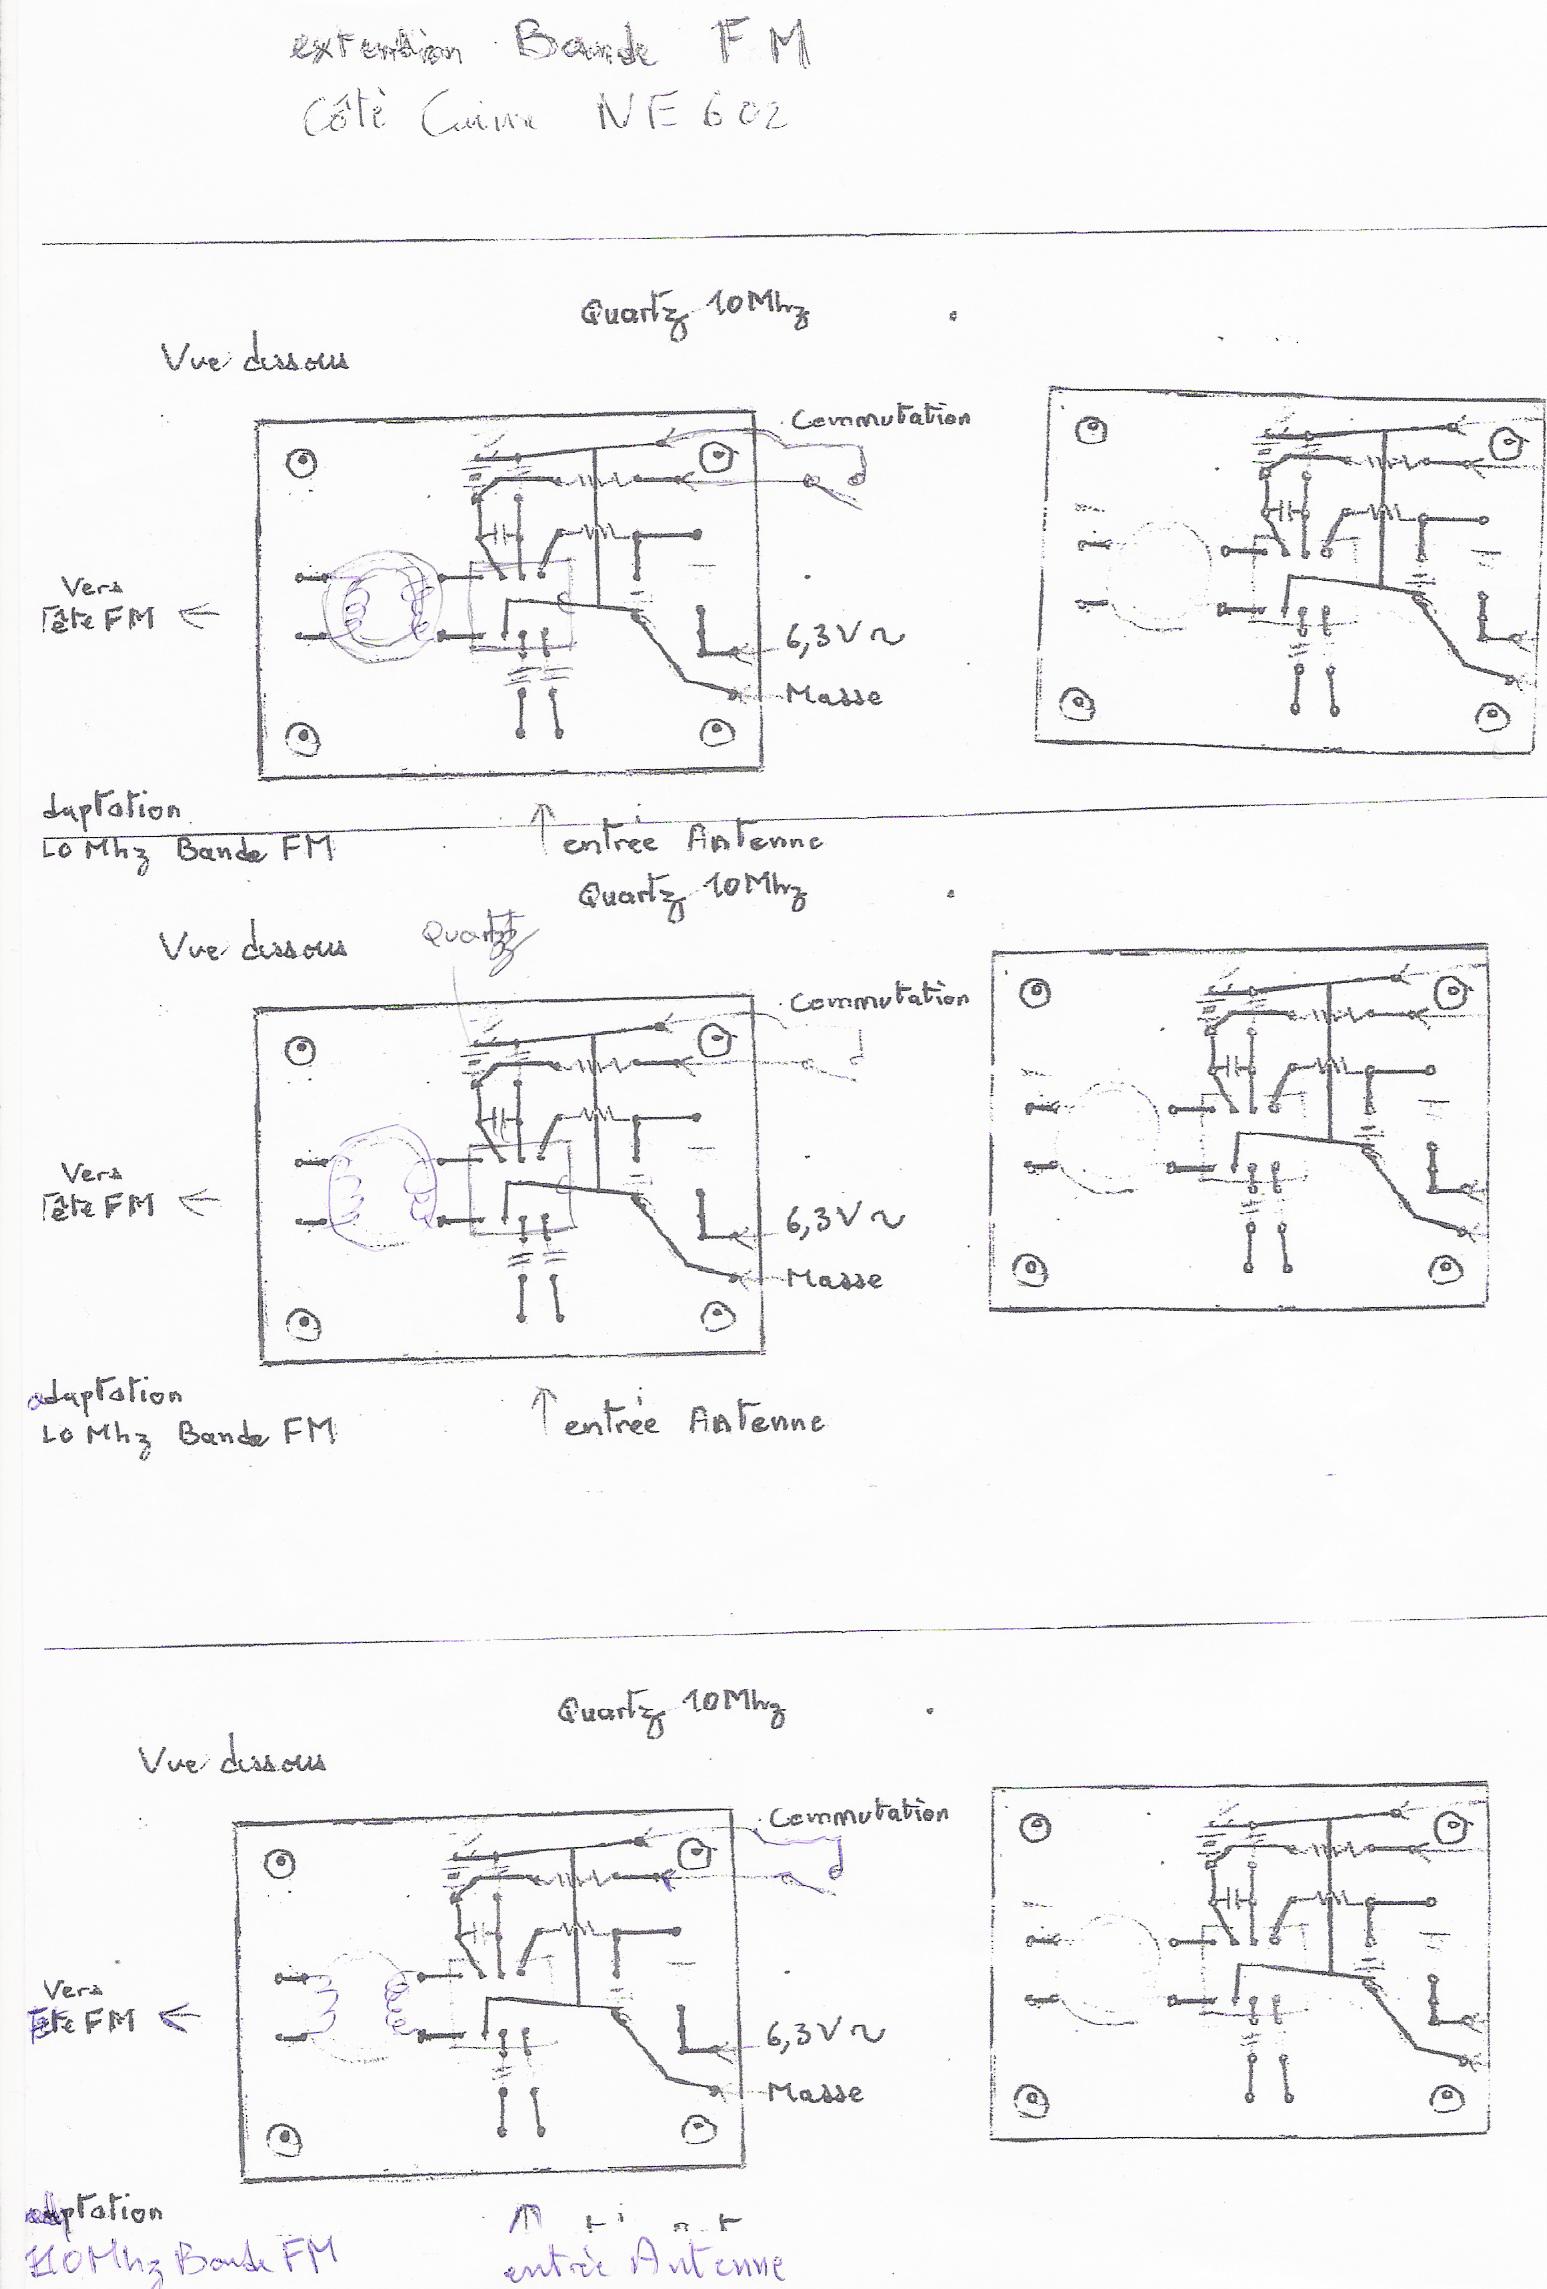 extention Bande FM
Côté Cuivre NE602
Quartz 10Mhz
Vue dessous
Commutation
Vers
Tête FM ←
6,3V ~
Masse
daptation
10 Mhz Bande FM
↑ entrée Antenne
Quartz 10Mhz
Vue dessous
Quartz
Commutation
Vers
Tête FM ←
6,3V ~
Masse
adaptation
10 Mhz Bande FM
↑ entrée Antenne
Quartz 10Mhz
Vue dessous
Commutation
Vers
Tête FM ←
6,3V ~
Masse
adaptation
10Mhz Bande FM
entrée Antenne